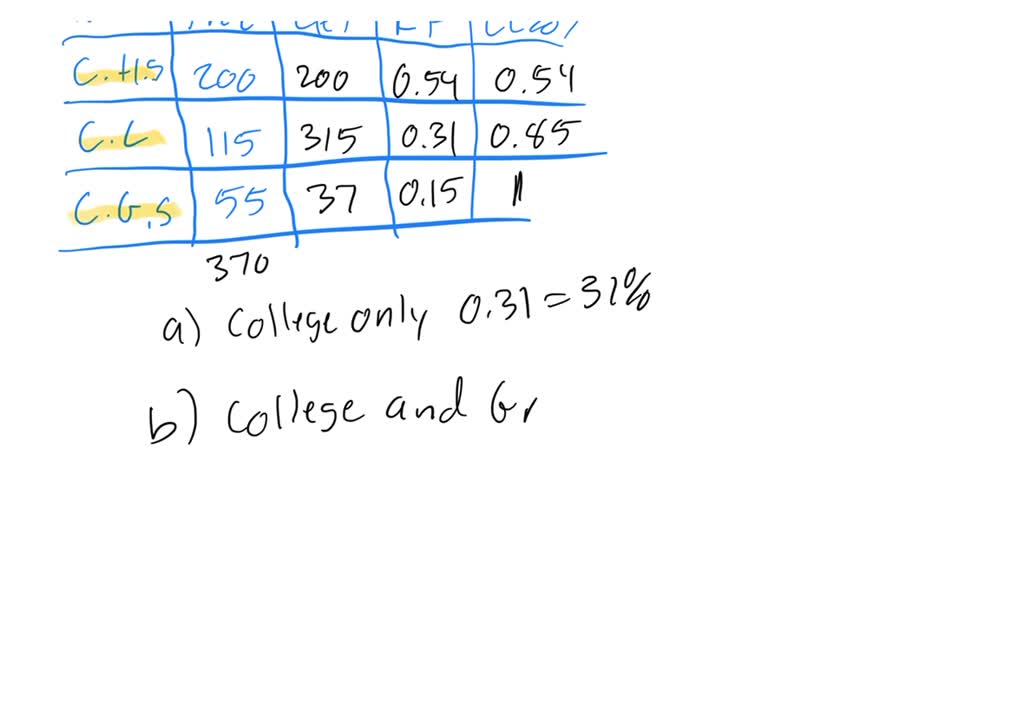 C.H.S 200 200 0.54 0.54
C.C 115 315 0.31 0.85
C.G.S 55 37 0.15 1
370
a) College only 0.31 = 31%
b) College and Gr